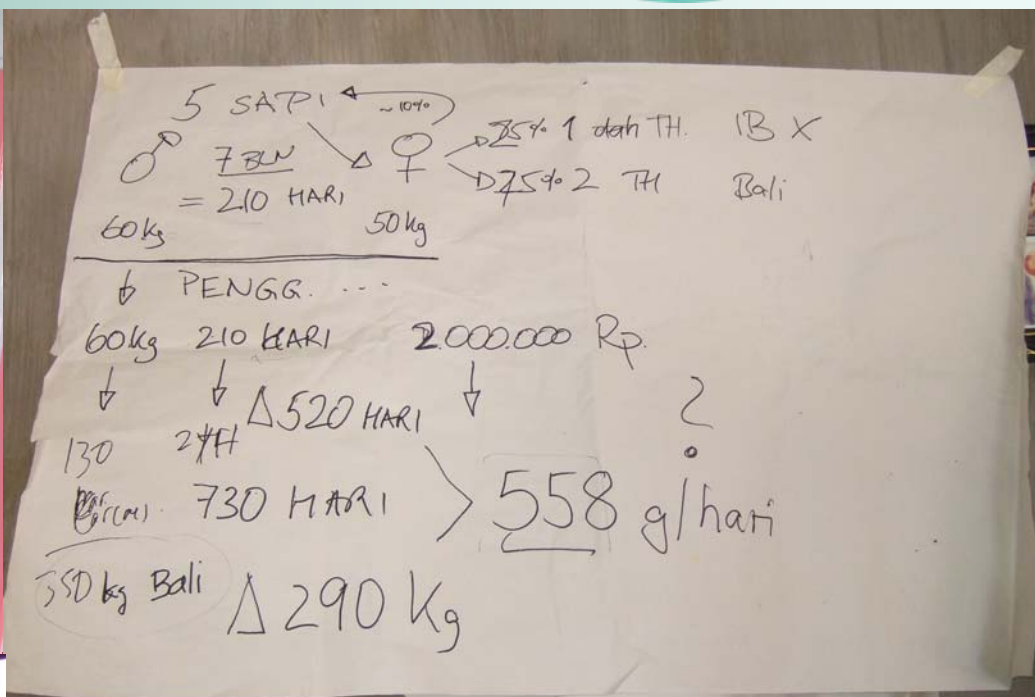 5 SAPI ~10%
♂ 7 BLN → ♀ 25% 1 TH. IB X
= 210 HARI 75% 2 TH Bali
60kg 50kg
PENGG. ....
60kg 210 HARI 2.000.000 Rp.
Δ520 HARI ?
130 2 TH
730 HARI 558 g/hari
350 kg Bali Δ290 Kg